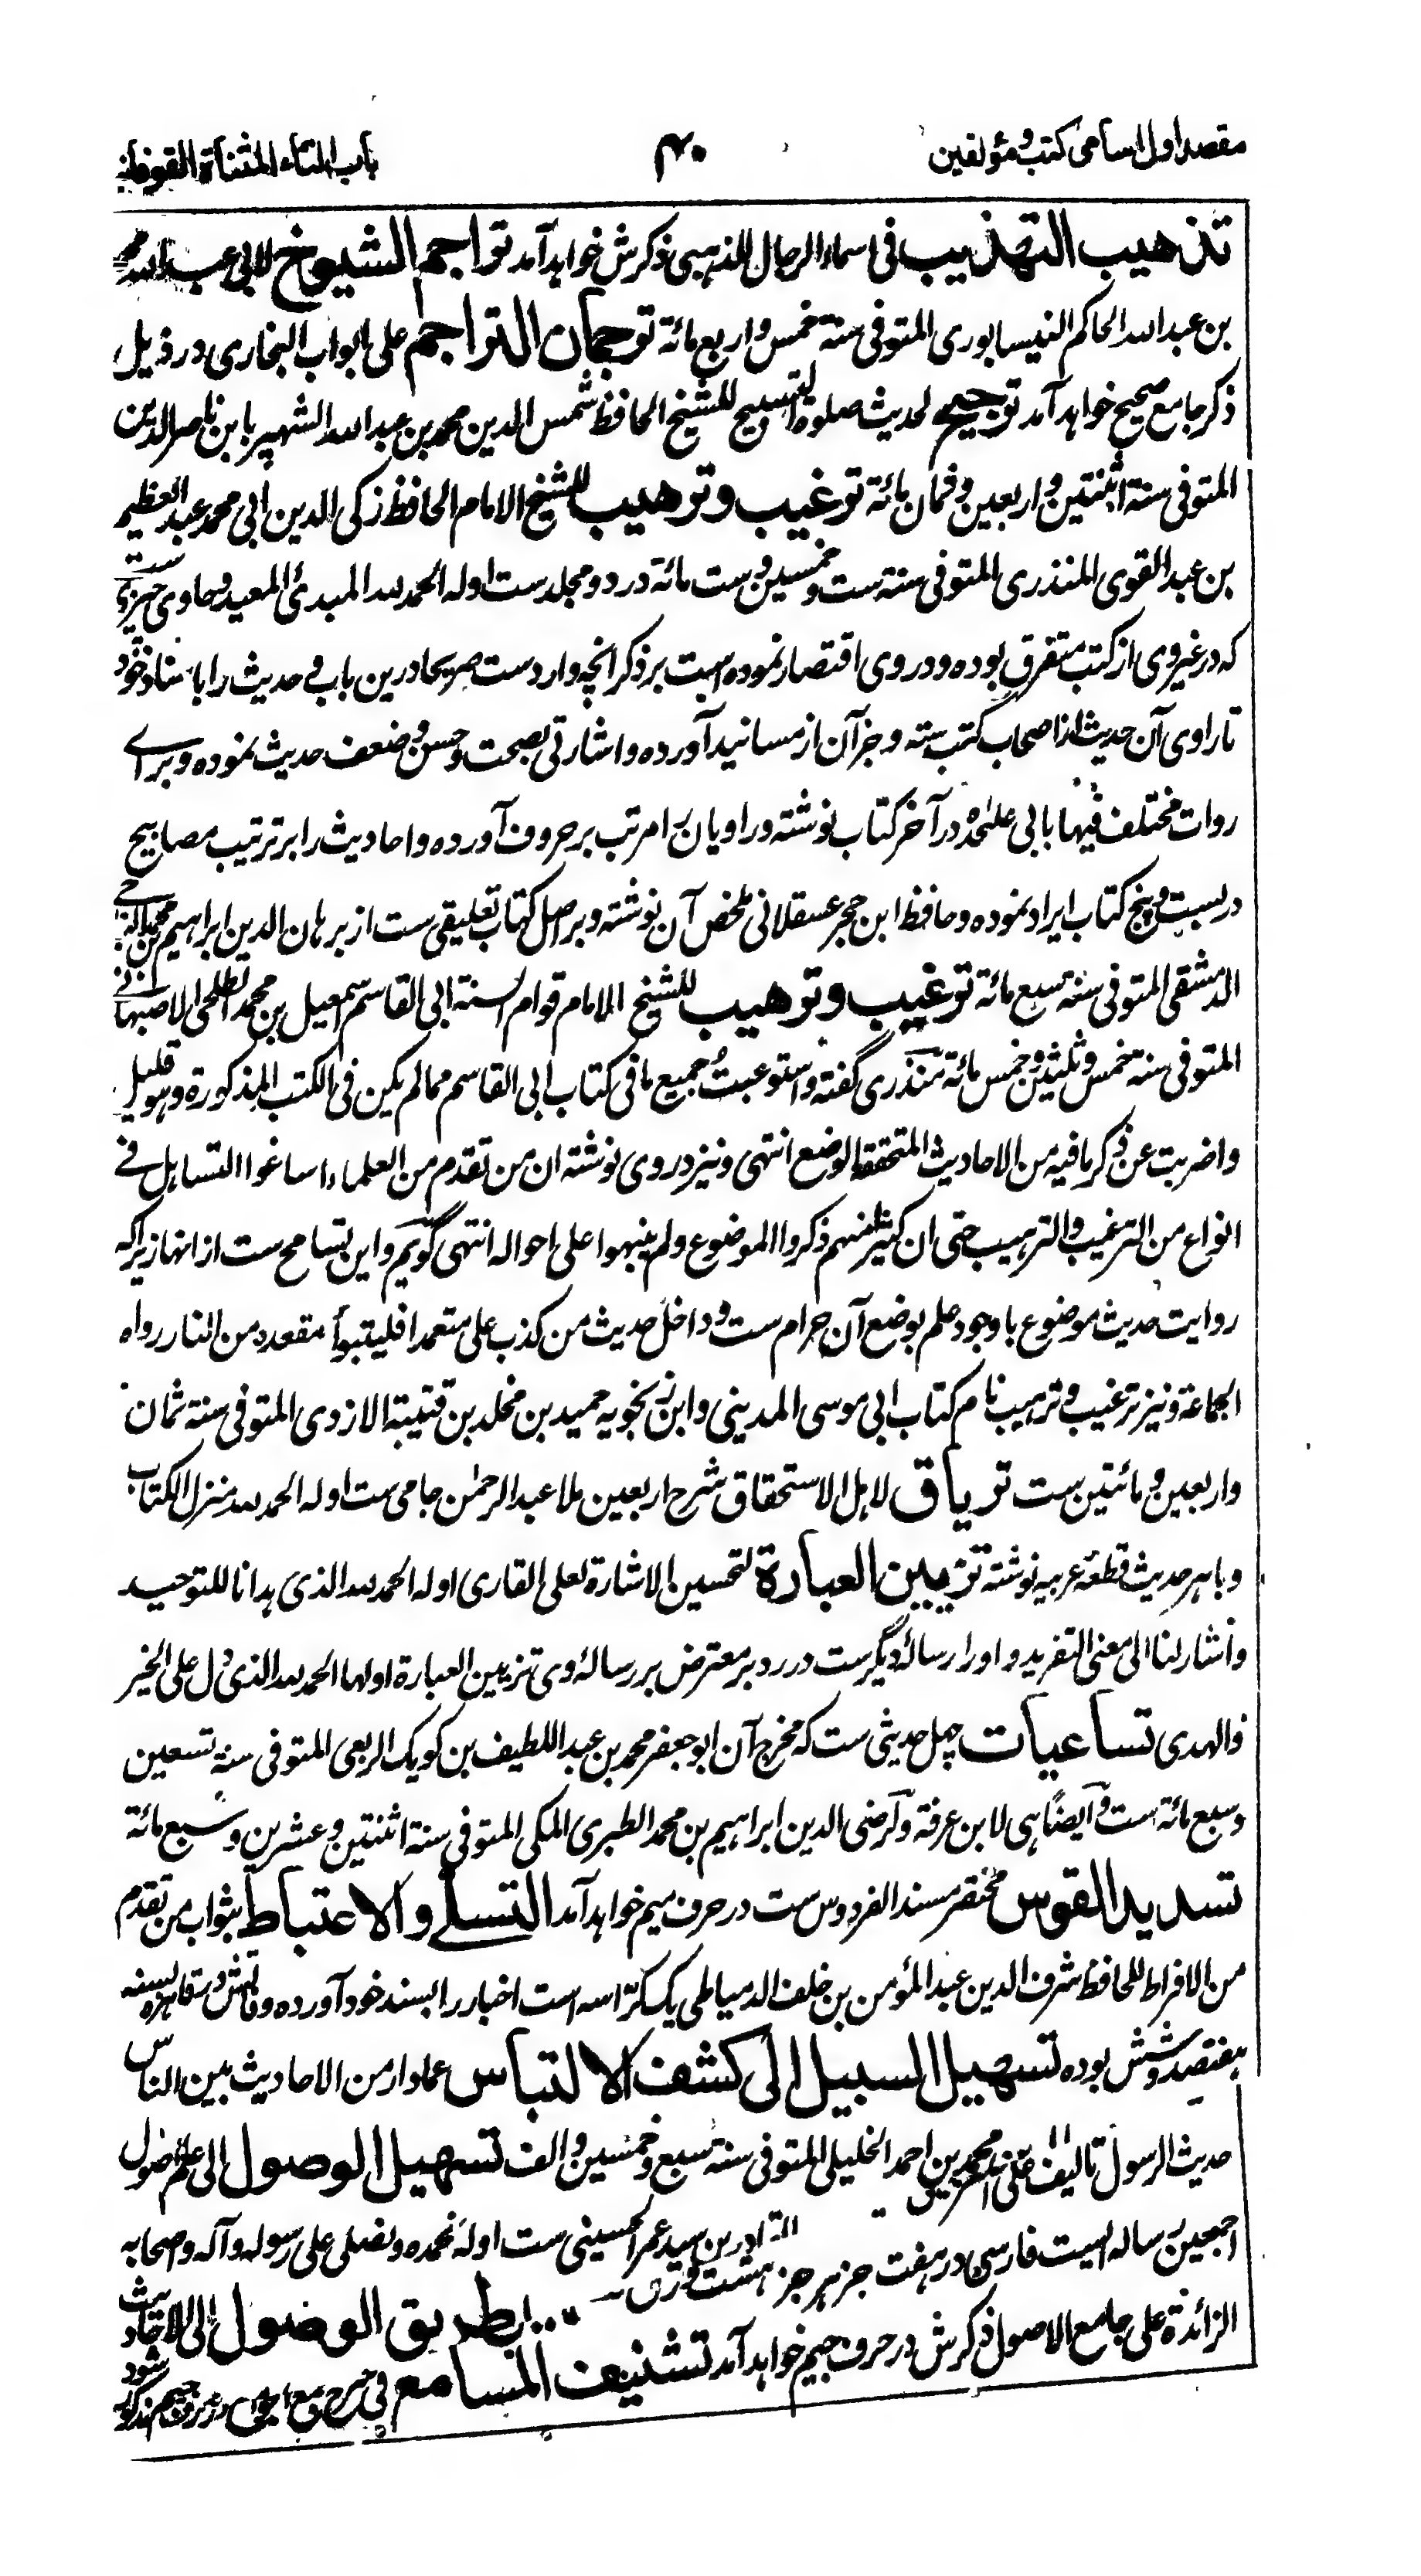 مقصد اول اسامی کتب و مؤلفین ۴۰ باب التاء المثناة الفوقانیة
تذهیب التهذیب فی اسماء الرجال للذهبی ذکرش خواهد آمد تراجم الشیوخ لابی عبد الله محمد
بن عبد الله الحاکم النیسابوری المتوفی سنة خمس و اربع مائة ترجمان التراجم علی ابواب البخاری در ذیل
ذکر جامع صحیح خواهد آمد ترجیح لحدیث صلوة التسبیح للشیخ الحافظ شمس الدین محمد بن عبد الله الشهیر بابن ناصر الدین
المتوفی سنة اثنتین و اربعین و ثمان مائة ترغیب و ترهیب للشیخ الامام الحافظ زکی الدین ابی محمد عبد العظیم
بن عبد القوی المنذری المتوفی سنة ست و خمسین و ست مائة در دو مجلد ست اوله الحمد لله المبدئ المعید و حاوی چیزی ست
که در غیر وی از کتب متفرق بوده و در وی اقتصار نموده است بر ذکر آنچه وارد ست صریحا درین باب و حدیث را باسناد خود
تا راوی آن حدیث از اصحاب کتب سته و جز آن از مسانید آورده و اشارتی بصحت و حسن و ضعف حدیث نموده و برای
روات مختلف فیها بابی علیحده در آخر کتاب نوشته و راویان را مرتب بر حروف آورده و احادیث را بر ترتیب مصابیح
در بست و پنج کتاب ایراد نموده و حافظ ابن حجر عسقلانی ملخص آن نوشته و بر اصل کتاب تعلیقی ست از برهان الدین ابراهیم بن محمد
الدمشقی المتوفی سنة تسع مائة ترغیب و ترهیب للشیخ الامام قوام السنة ابی القاسم اسمعیل بن محمد الطلحی الاصبهانی
المتوفی سنة خمس و ثلثین و خمس مائة منذری گفته و استوعبتُ جمیع ما فی کتاب ابی القاسم مما لم یکن فی الکتب المذکورة و هو قلیل
و اضربت عن ذکر ما فیه من الاحادیث المتحققة الوضع انتهی و نیز در وی نوشته ان من تقدم من العلماء اساغوا التساهل فی
انواع من الترغیب و الترهیب حتی ان کثیرا منهم ذکروا الموضوع و لم ینبهوا علی احواله انتهی گویم و این تسامح ست از انها زیراکه
روایت حدیث موضوع با وجود علم بوضع آن حرام ست و داخل حدیث من کذب علی متعمدا فلیتبوأ مقعده من النار رواه
الجماعة و نیز ترغیب و ترهیب نام کتاب ابی موسی المدینی و ابن زنجویه حمید بن مخلد بن قتیبة الازدی المتوفی سنة ثمان
و اربعین و مائتین ست تریاق لاهل الاستحقاق شرح اربعین ملا عبد الرحمٰن جامی ست اوله الحمد لله منزل الکتاب
و با هر حدیث قطعۀ عربیه نوشته تزیین العبارة لتحسین الاشارة لعلی القاری اوله الحمد لله الذی هدانا للتوحید
و اشار لنا الی معنی التفرید و او را رسالۀ دیگر ست در رد بر معترض بر رسالۀ وی تزیین العبارة اولها الحمد لله الذی دل علی الخیر
و الهدی تساعیات چهل حدیثی ست که مخرج آن ابو جعفر محمد بن عبد اللطیف بن کویک الربعی المتوفی سنة تسعین
و سبع مائة ست و ایضًا هی لابن عرفة و لرضی الدین ابراهیم بن محمد الطبری المکی المتوفی سنة اثنتین و عشرین و سبع مائة
تسدید القوس مختصر مسند الفردوس ست در حرف میم خواهد آمد التسلی و الاغتباط بثواب من تقدم
من الافراط للحافظ شرف الدین عبد المؤمن بن خلف الدمیاطی یک کرّاسه است اخبار را بسند خود آورده و فاتش در قاهره بسنه
هفتصد و شش بوده تسهیل السبیل الی کشف الالتباس عما دار من الاحادیث بین الناس
حدیث الرسول تالیف محمد بن احمد الخلیلی المتوفی سنة سبع و خمسین و الف تسهیل الوصول الی علم اصول
اجمعین رساله ایست فارسی در هفت جز هر جز هشت ورق بن سید عمر الحسینی ست اوله نحمده و نصلی علی رسوله و آله و صحابه
الزائدة علی جامع الاصول ذکرش در حرف جیم خواهد آمد تشنیف المسامع طریق الوصول الی الاحادیث